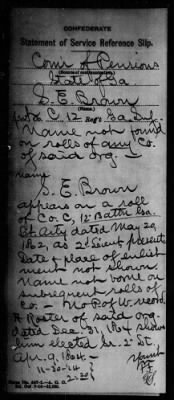 CONFEDERATE
Statement of Service Reference Slip.
Comr of Pensions
State of Ga
S. E. Brown
(Name.)
C, 12 Reg't Ga. Inf.
Name not found
on rolls of any Co.
of said org —
name
S. E. Brown
appears on a roll
of Co. C, 12" Battn Ga.
Lt. Arty dated May 20,
1862, as 2" Lieut present
Date & place of enlist
ment not shown.
Name not borne on
subsequent rolls of
Co. — No P. of W. record
A Roster of said org.
dated Dec. 31, 1864 shows
him elected Sr. 2" Lt.
Apr. 9, 1864 —
11-30-14